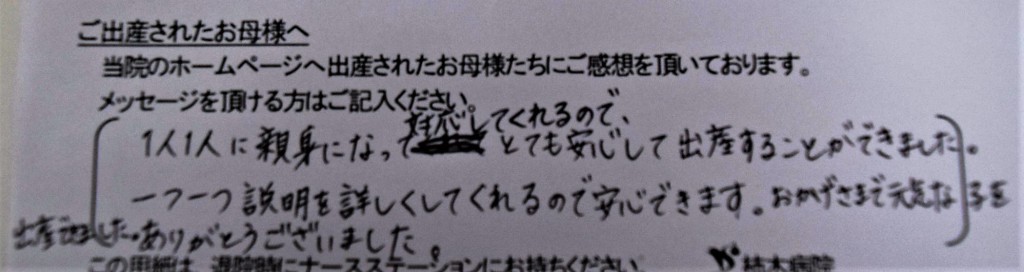 ご出産されたお母様へ
当院のホームページへ出産されたお母様たちにご感想を頂いております。
メッセージを頂ける方はご記入ください。
1人1人に親身になって対応してくれるので、とても安心して出産することができました。
一つ一つ説明を詳しくしてくれるので安心できます。おかげさまで元気な子を
出産できました。ありがとうございました。
この用紙は、退院時にナースステーションにお持ちください。 結木病院